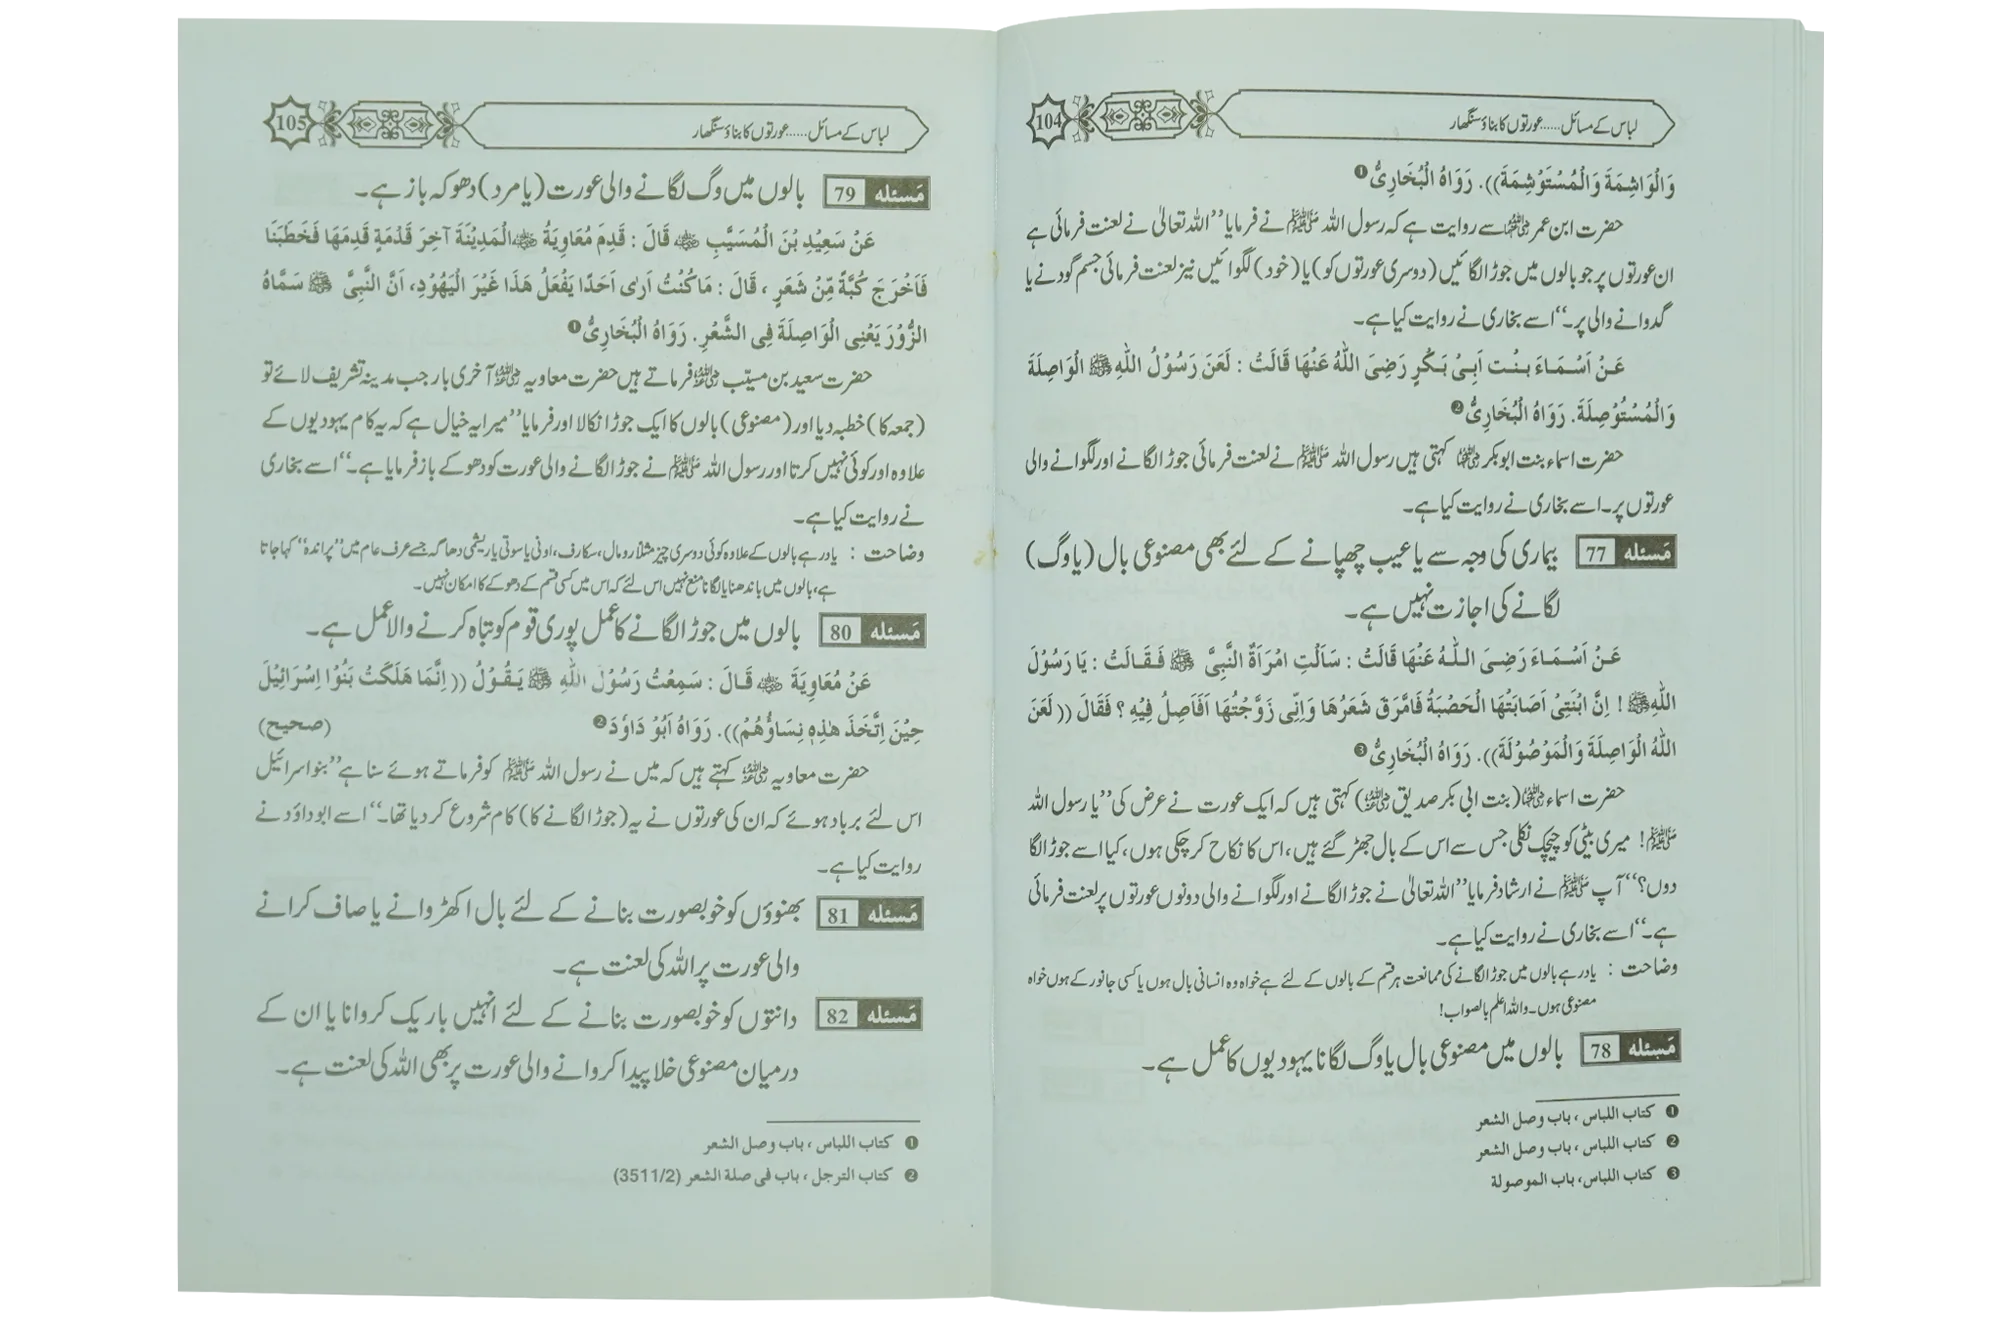 لباس کے مسائل.....عورتوں کا بناؤ سنگھار
104
وَالْوَاشِمَةَ وَالْمُسْتَوْشِمَةَ)). رَوَاهُ الْبُخَارِیُّ❶
حضرت ابن عمر رضی اللہ عنہما سے روایت ہے کہ رسول اللہ ﷺ نے فرمایا ’’اللہ تعالیٰ نے لعنت فرمائی ہے
ان عورتوں پر جو بالوں میں جوڑ لگائیں (دوسری عورتوں کو) یا (خود) لگوائیں نیز لعنت فرمائی جسم گودنے یا
گدوانے والی پر۔‘‘ اسے بخاری نے روایت کیا ہے۔
عَنْ اَسْمَاءَ بِنْتِ اَبِیْ بَکْرٍ رَضِیَ اللّٰهُ عَنْهَا قَالَتْ : لَعَنَ رَسُوْلُ اللّٰهِ ﷺ الْوَاصِلَةَ
وَالْمُسْتَوْصِلَةَ. رَوَاهُ الْبُخَارِیُّ❷
حضرت اسماء بنت ابوبکر رضی اللہ عنہا کہتی ہیں رسول اللہ ﷺ نے لعنت فرمائی جوڑ لگانے اور لگوانے والی
عورتوں پر۔ اسے بخاری نے روایت کیا ہے۔
مَسئلہ 77 بیماری کی وجہ سے یا عیب چھپانے کے لئے بھی مصنوعی بال (یا وگ)
لگانے کی اجازت نہیں ہے۔
عَنْ اَسْمَاءَ رَضِیَ اللّٰهُ عَنْهَا قَالَتْ : سَاَلَتِ امْرَاَةٌ النَّبِیَّ ﷺ فَقَالَتْ : یَا رَسُوْلَ
اللّٰهِ ﷺ ! اِنَّ ابْنَتِیْ اَصَابَتْهَا الْحَصْبَةُ فَامَّرَقَ شَعَرُهَا وَاِنِّی زَوَّجْتُهَا اَفَاَصِلُ فِیْهِ ؟ فَقَالَ (( لَعَنَ
اللّٰهُ الْوَاصِلَةَ وَالْمَوْصُوْلَةَ)). رَوَاهُ الْبُخَارِیُّ❸
حضرت اسماء رضی اللہ عنہا (بنت ابی بکر صدیق رضی اللہ عنہ) کہتی ہیں کہ ایک عورت نے عرض کی ’’یا رسول اللہ
ﷺ! میری بیٹی کو چیچک نکلی جس سے اس کے بال جھڑ گئے ہیں، اس کا نکاح کر چکی ہوں، کیا اسے جوڑ لگا
دوں؟‘‘ آپ ﷺ نے ارشاد فرمایا ’’اللہ تعالیٰ نے جوڑ لگانے اور لگوانے والی دونوں عورتوں پر لعنت فرمائی
ہے۔‘‘ اسے بخاری نے روایت کیا ہے۔
وضاحت : یاد رہے بالوں میں جوڑ لگانے کی ممانعت ہر قسم کے بالوں کے لئے ہے خواہ وہ انسانی بال ہوں یا کسی جانور کے ہوں خواہ
مصنوعی ہوں۔ واللہ اعلم بالصواب!
مَسئلہ 78 بالوں میں مصنوعی بال یا وگ لگانا یہودیوں کا عمل ہے۔
❶ کتاب اللباس ، باب وصل الشعر
❷ کتاب اللباس ، باب وصل الشعر
❸ کتاب اللباس، باب الموصولة
لباس کے مسائل.....عورتوں کا بناؤ سنگھار
105
مَسئلہ 79 بالوں میں وگ لگانے والی عورت (یا مرد) دھوکہ باز ہے۔
عَنْ سَعِیْدِ بْنِ الْمُسَیَّبِ ؓ قَالَ : قَدِمَ مُعَاوِیَةُ ؓ الْمَدِیْنَةَ آخِرَ قَدْمَةٍ قَدِمَهَا فَخَطَبَنَا
فَاَخْرَجَ کُبَّةً مِّنْ شَعَرٍ ، قَالَ : مَا کُنْتُ اَرٰی اَحَدًا یَفْعَلُ هٰذَا غَیْرَ الْیَهُوْدِ، اَنَّ النَّبِیَّ ﷺ سَمَّاهُ
الزُّوْرَ یَعْنِی الْوَاصِلَةَ فِی الشَّعْرِ. رَوَاهُ الْبُخَارِیُّ❶
حضرت سعید بن مسیّب رضی اللہ عنہ فرماتے ہیں حضرت معاویہ رضی اللہ عنہ آخری بار جب مدینہ تشریف لائے تو
(جمعہ کا) خطبہ دیا اور (مصنوعی) بالوں کا ایک جوڑا نکالا اور فرمایا ’’میرا یہ خیال ہے کہ یہ کام یہودیوں کے
علاوہ اور کوئی نہیں کرتا اور رسول اللہ ﷺ نے جوڑ لگانے والی عورت کو دھوکے باز فرمایا ہے۔‘‘ اسے بخاری
نے روایت کیا ہے۔
وضاحت : یاد رہے بالوں کے علاوہ کوئی دوسری چیز مثلاً رومال، سکارف، اونی یا سوتی یا ریشمی دھاگہ جسے عرف عام میں ’’پراندہ‘‘ کہا جاتا
ہے، بالوں میں باندھنا یا لگانا منع نہیں اس لئے کہ اس میں کسی قسم کے دھوکے کا امکان نہیں۔
مَسئلہ 80 بالوں میں جوڑ لگانے کا عمل پوری قوم کو تباہ کرنے والا عمل ہے۔
عَنْ مُعَاوِیَةَ ؓ قَالَ : سَمِعْتُ رَسُوْلَ اللّٰهِ ﷺ یَقُوْلُ (( اِنَّمَا هَلَکَتْ بَنُوْا اِسْرَائِیْلَ
حِیْنَ اِتَّخَذَ هٰذِهٖ نِسَاؤُهُمْ)). رَوَاهُ اَبُوْ دَاوٗدَ❷ (صحیح)
حضرت معاویہ رضی اللہ عنہ کہتے ہیں کہ میں نے رسول اللہ ﷺ کو فرماتے ہوئے سنا ہے ’’بنو اسرائیل
اس لئے برباد ہوئے کہ ان کی عورتوں نے یہ (جوڑ لگانے کا) کام شروع کر دیا تھا۔‘‘ اسے ابوداؤد نے
روایت کیا ہے۔
مَسئلہ 81 بھنوؤں کو خوبصورت بنانے کے لئے بال اکھڑوانے یا صاف کرانے
والی عورت پر اللہ کی لعنت ہے۔
مَسئلہ 82 دانتوں کو خوبصورت بنانے کے لئے انہیں باریک کروانا یا ان کے
درمیان مصنوعی خلا پیدا کروانے والی عورت پر بھی اللہ کی لعنت ہے۔
❶ کتاب اللباس ، باب وصل الشعر
❷ کتاب الترجل ، باب فی صلة الشعر (3511/2)